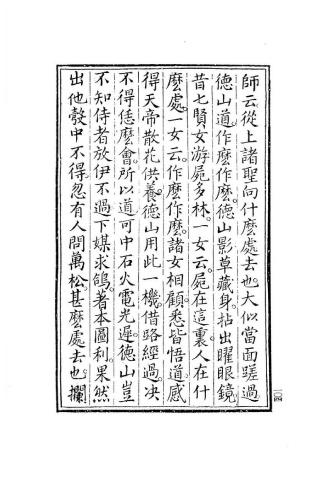 師云從上諸聖向什麼處去也大似當面蹉過
德山道作麼作麼德山影草藏身拈出曜眼鏡
昔七賢女游屍多林一女云屍在這裏人在什
麼處一女云作麼作麼諸女相顧悉皆悟道感
得天帝散花供養德山用此一機借路經過決
不得恁麼會所以道可中石火電光遲德山豈
不知侍者放伊不過下媒求鴿著本圖利果然
出他彀中不得忽有人問萬松甚麼處去也攔